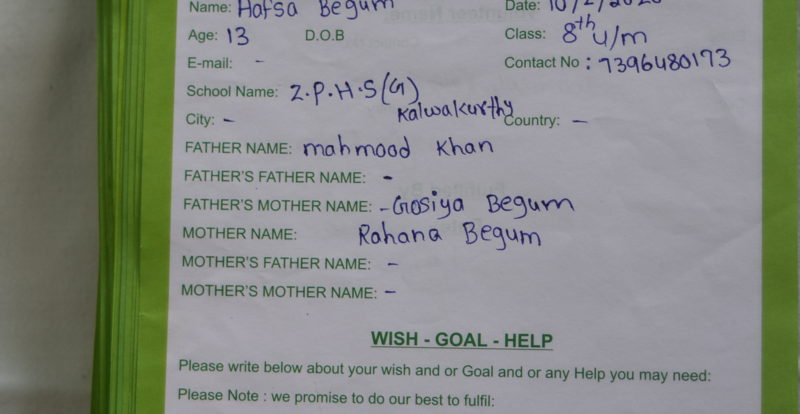 Name: Hafsa Begum Date: 10/2/2020
Age: 13 D.O.B Class: 8th u/m
E-mail: - Contact No : 7396480173
School Name: Z.P.H.S(G)
Kalwakurthy
City: - Country: -
FATHER NAME: mahmood Khan
FATHER'S FATHER NAME: -
FATHER'S MOTHER NAME: - Gosiya Begum
MOTHER NAME: Rahana Begum
MOTHER'S FATHER NAME: -
MOTHER'S MOTHER NAME: -
WISH - GOAL - HELP
Please write below about your wish and or Goal and or any Help you may need:
Please Note : we promise to do our best to fulfil: